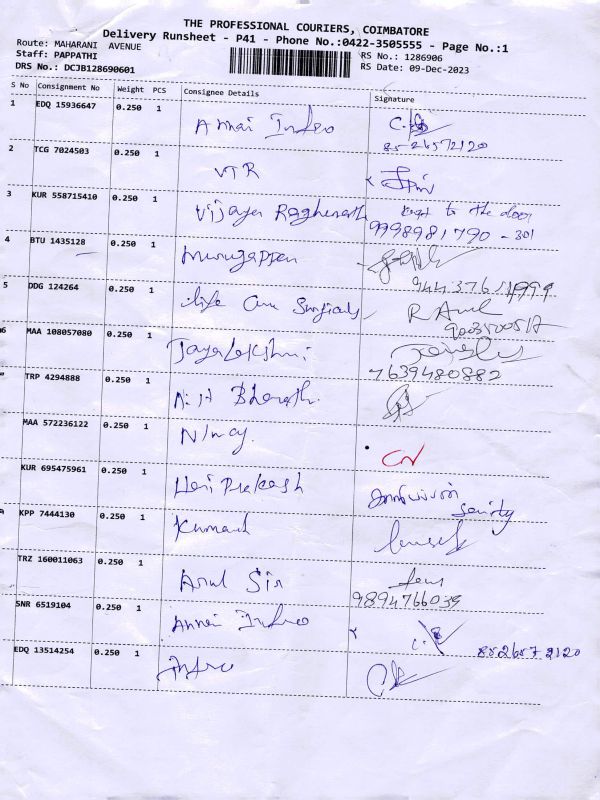 THE PROFESSIONAL COURIERS, COIMBATORE
Delivery Runsheet - P41 - Phone No.:0422-3505555 - Page No.:1
Route: MAHARANI AVENUE
Staff: PAPPATHI
RS No.: 1286906
DRS No.: DCJB128690601
RS Date: 09-Dec-2023
S No Consignment No Weight PCS Consignee Details Signature
1 EDQ 15936647 0.250 1 Annai Infro
8526572120
2 TCG 7024503 0.250 1 VTR
3 KUR 558715410 0.250 1 Vijaya Raghunath kept to the door
9998981790 - 301
4 BTU 1435128 0.250 1 Murugappan
5 DDG 124264 0.250 1 life Care Surgicals
6 MAA 108057080 0.250 1 Jaya Lakshmi
7639480882
TRP 4294888 0.250 1 Bharath.
MAA 572236122 0.250 1
KUR 695475961 0.250 1 Hari Prakash
KPP 7444130 0.250 1
TRZ 160011063 0.250 1 Arul Sir
9894766039
SNR 6519104 0.250 1 Annai Infro
8526572120
EDQ 13514254 0.250 1 Infro